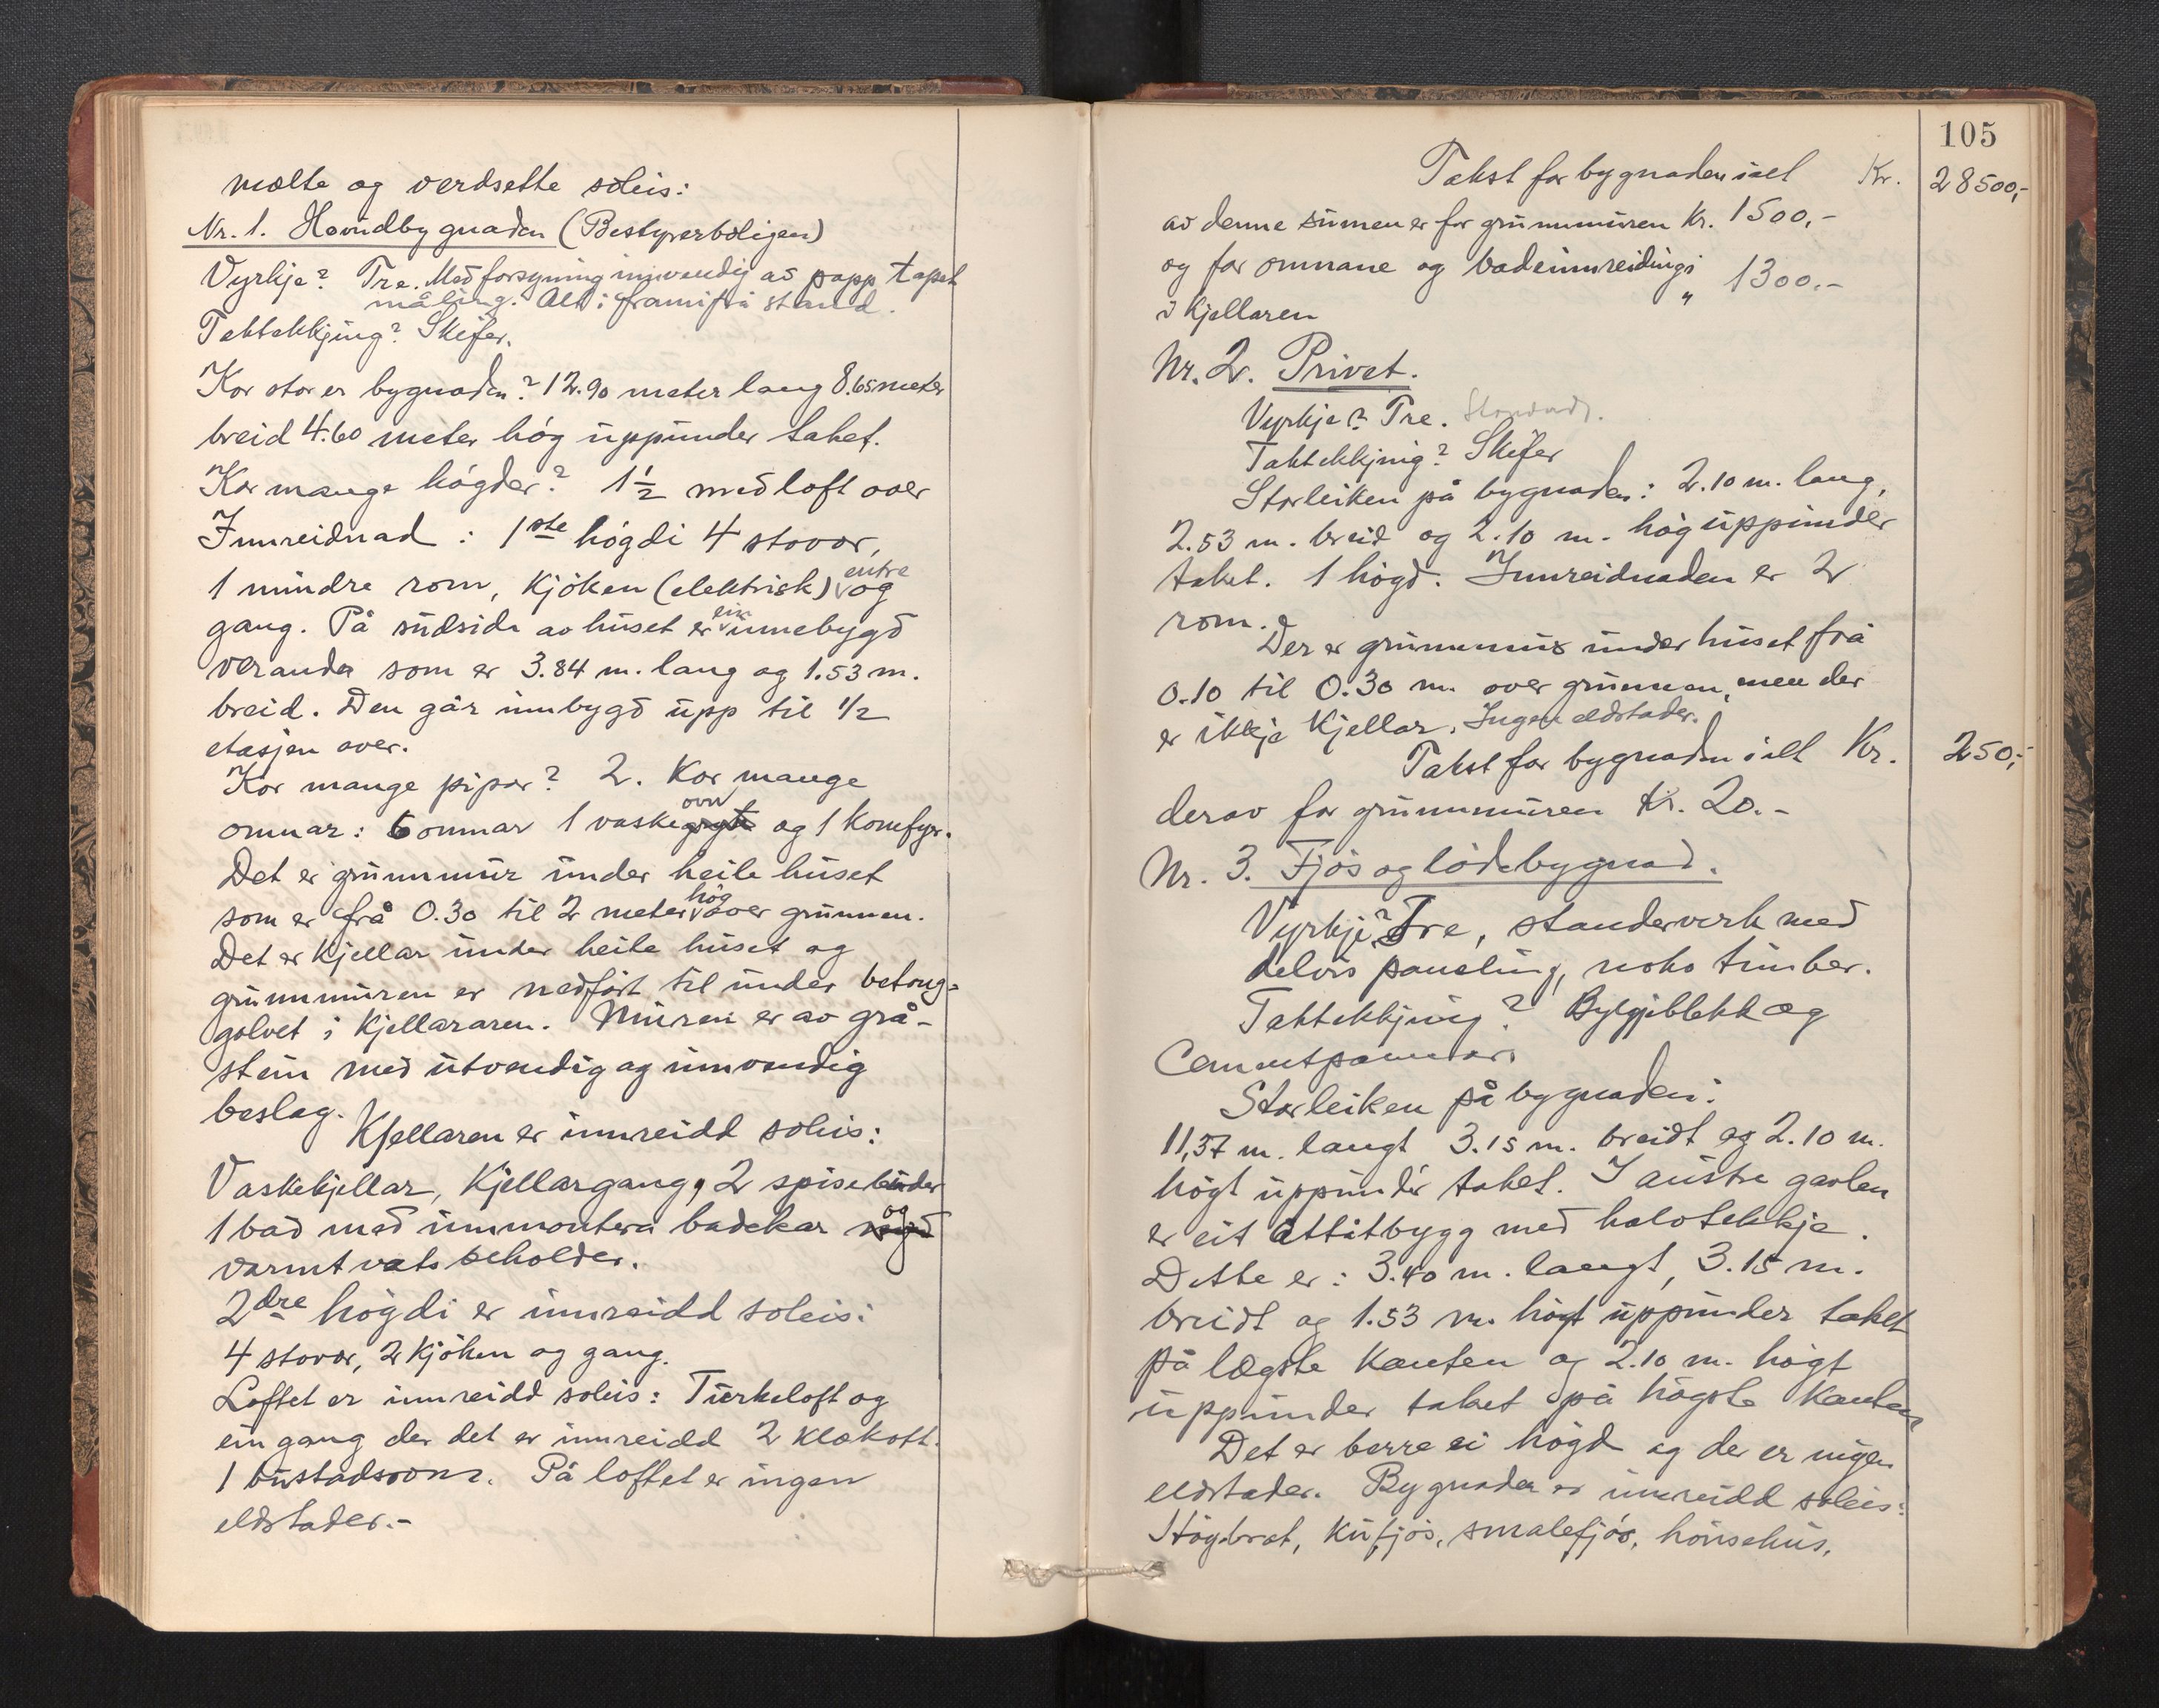 mælte og verdsette soleis:
Nr. 1. Hovudbygnaden (Bestyrerboligen)
Vyrkje? Tre. Med forsyning innvendig av papp tapet
måling. Alt i framifrå stand.
Taktekkjing? Skifer.
Kor stor er bygnaden? 12.90 meter lang 8.65 meter
breid 4.60 meter høg uppunder taket.
Kor mange høgder? 1½ med loft over
Innreidnad: 1ste høgdi 4 stovor,
1 mindre rom, kjøken (elektrisk) entre og
gang. På sudsida av huset er ein innebygd
veranda som er 3.84 m. lang og 1.53 m.
breid. Den går innbygd upp til 1/2
etasjen over.
Kor mange pipor? 2. Kor mange
omnar: 6 omnar 1 vaskeovn og 1 komfyr.
Det er grunnmur under heile huset
som er frå 0.30 til 2 meter høg over grunnen.
Det er kjellar under heile huset og
grunnmuren er nedført til under betong=
golvet i kjellararen. Muren er av grå-
stein med utvendig og innvendig
beslag.
Kjellaren er innreidd soleis:
Vaskekjellar, kjellargang, 2 spisebuder
1 bad med innmontera badekar og
varmtvatsbeholder.
2dre høgdi er innreidd soleis:
4 stovor, 2 kjøken og gang.
Loftet er innreidd soleis: Turkeloft og
ein gang der det er innreidd 2 klækott.
1 bustadsrom. På loftet er ingen
eldstader.-
105
Takst for bygnaden ialt Kr. 28500,-
av denne sumen er for grunnmuren Kr. 1500,-
og for omnane og badeinnreidingi
i kjellaren " 1300.-
Nr. 2. Privet.
Vyrkje? Tre.
Taktekkjing? Skifer
Storleiken på bygnaden: 2.10 m. lang,
2.53 m. breid og 2.10 m. høg uppunder
taket. 1 høgd. Innreidnaden er 2
rom.
Der er grunnmur under huset frå
0.10 til 0.30 m. over grunnen, men der
er ikkje kjellar. Ingen eldstader.
Takst for bygnaden ialt Kr. 250,-
derav for grunnmuren Kr. 20.-
Nr. 3. Fjøs og lødebygnad.
Vyrkje? Tre, standerverk med
delvis paneling, noko timber.
Taktekkjing? Bylgjeblekk og
Cementpannor.
Storleiken på bygnaden:
11,37 m. langt 3.15 m. breidt og 2.10 m.
høgt uppunder taket. I austre gavlen
er eit attåtbygg med halvtekkje.
Dette er: 3.40 m. langt, 3.15 m.
breidt og 1.53 m. høgt uppunder taket
på lægste kanten og 2.10 m. høgt
uppunder taket på høgste kanten
Det er berre ei høgd og der er ingen
eldstader. Bygnaden er innreidd soleis:
Høybrot, kufjøs, smalefjøs, hønsehus,